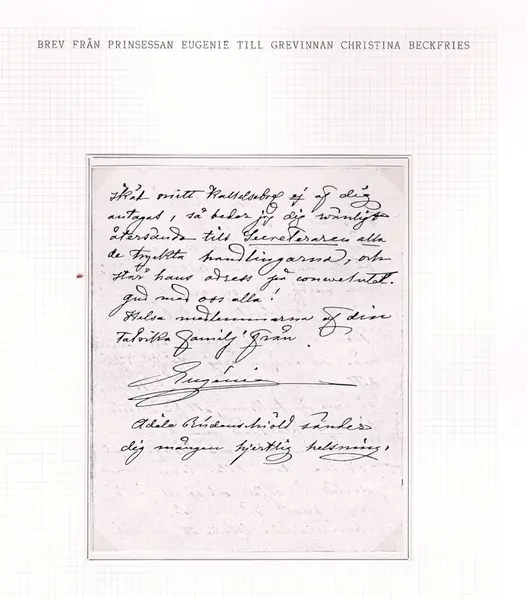 BREV FRÅN PRINSESSAN EUGENIE TILL GREVINNAN CHRISTINA BECKFRIES
mitt Kallelsebref ej af dig
antagas, så beder jag dig vänligt
återsända till Secreteraren alla
de tryckta handlingarna, och
står hans adress på convolutet.
gud med oss alla!
Helsa medlemmarna af din
talrika familj från
Eugénie
Adèle Rudenschiöld sänder
dig mången hjertlig helsning.